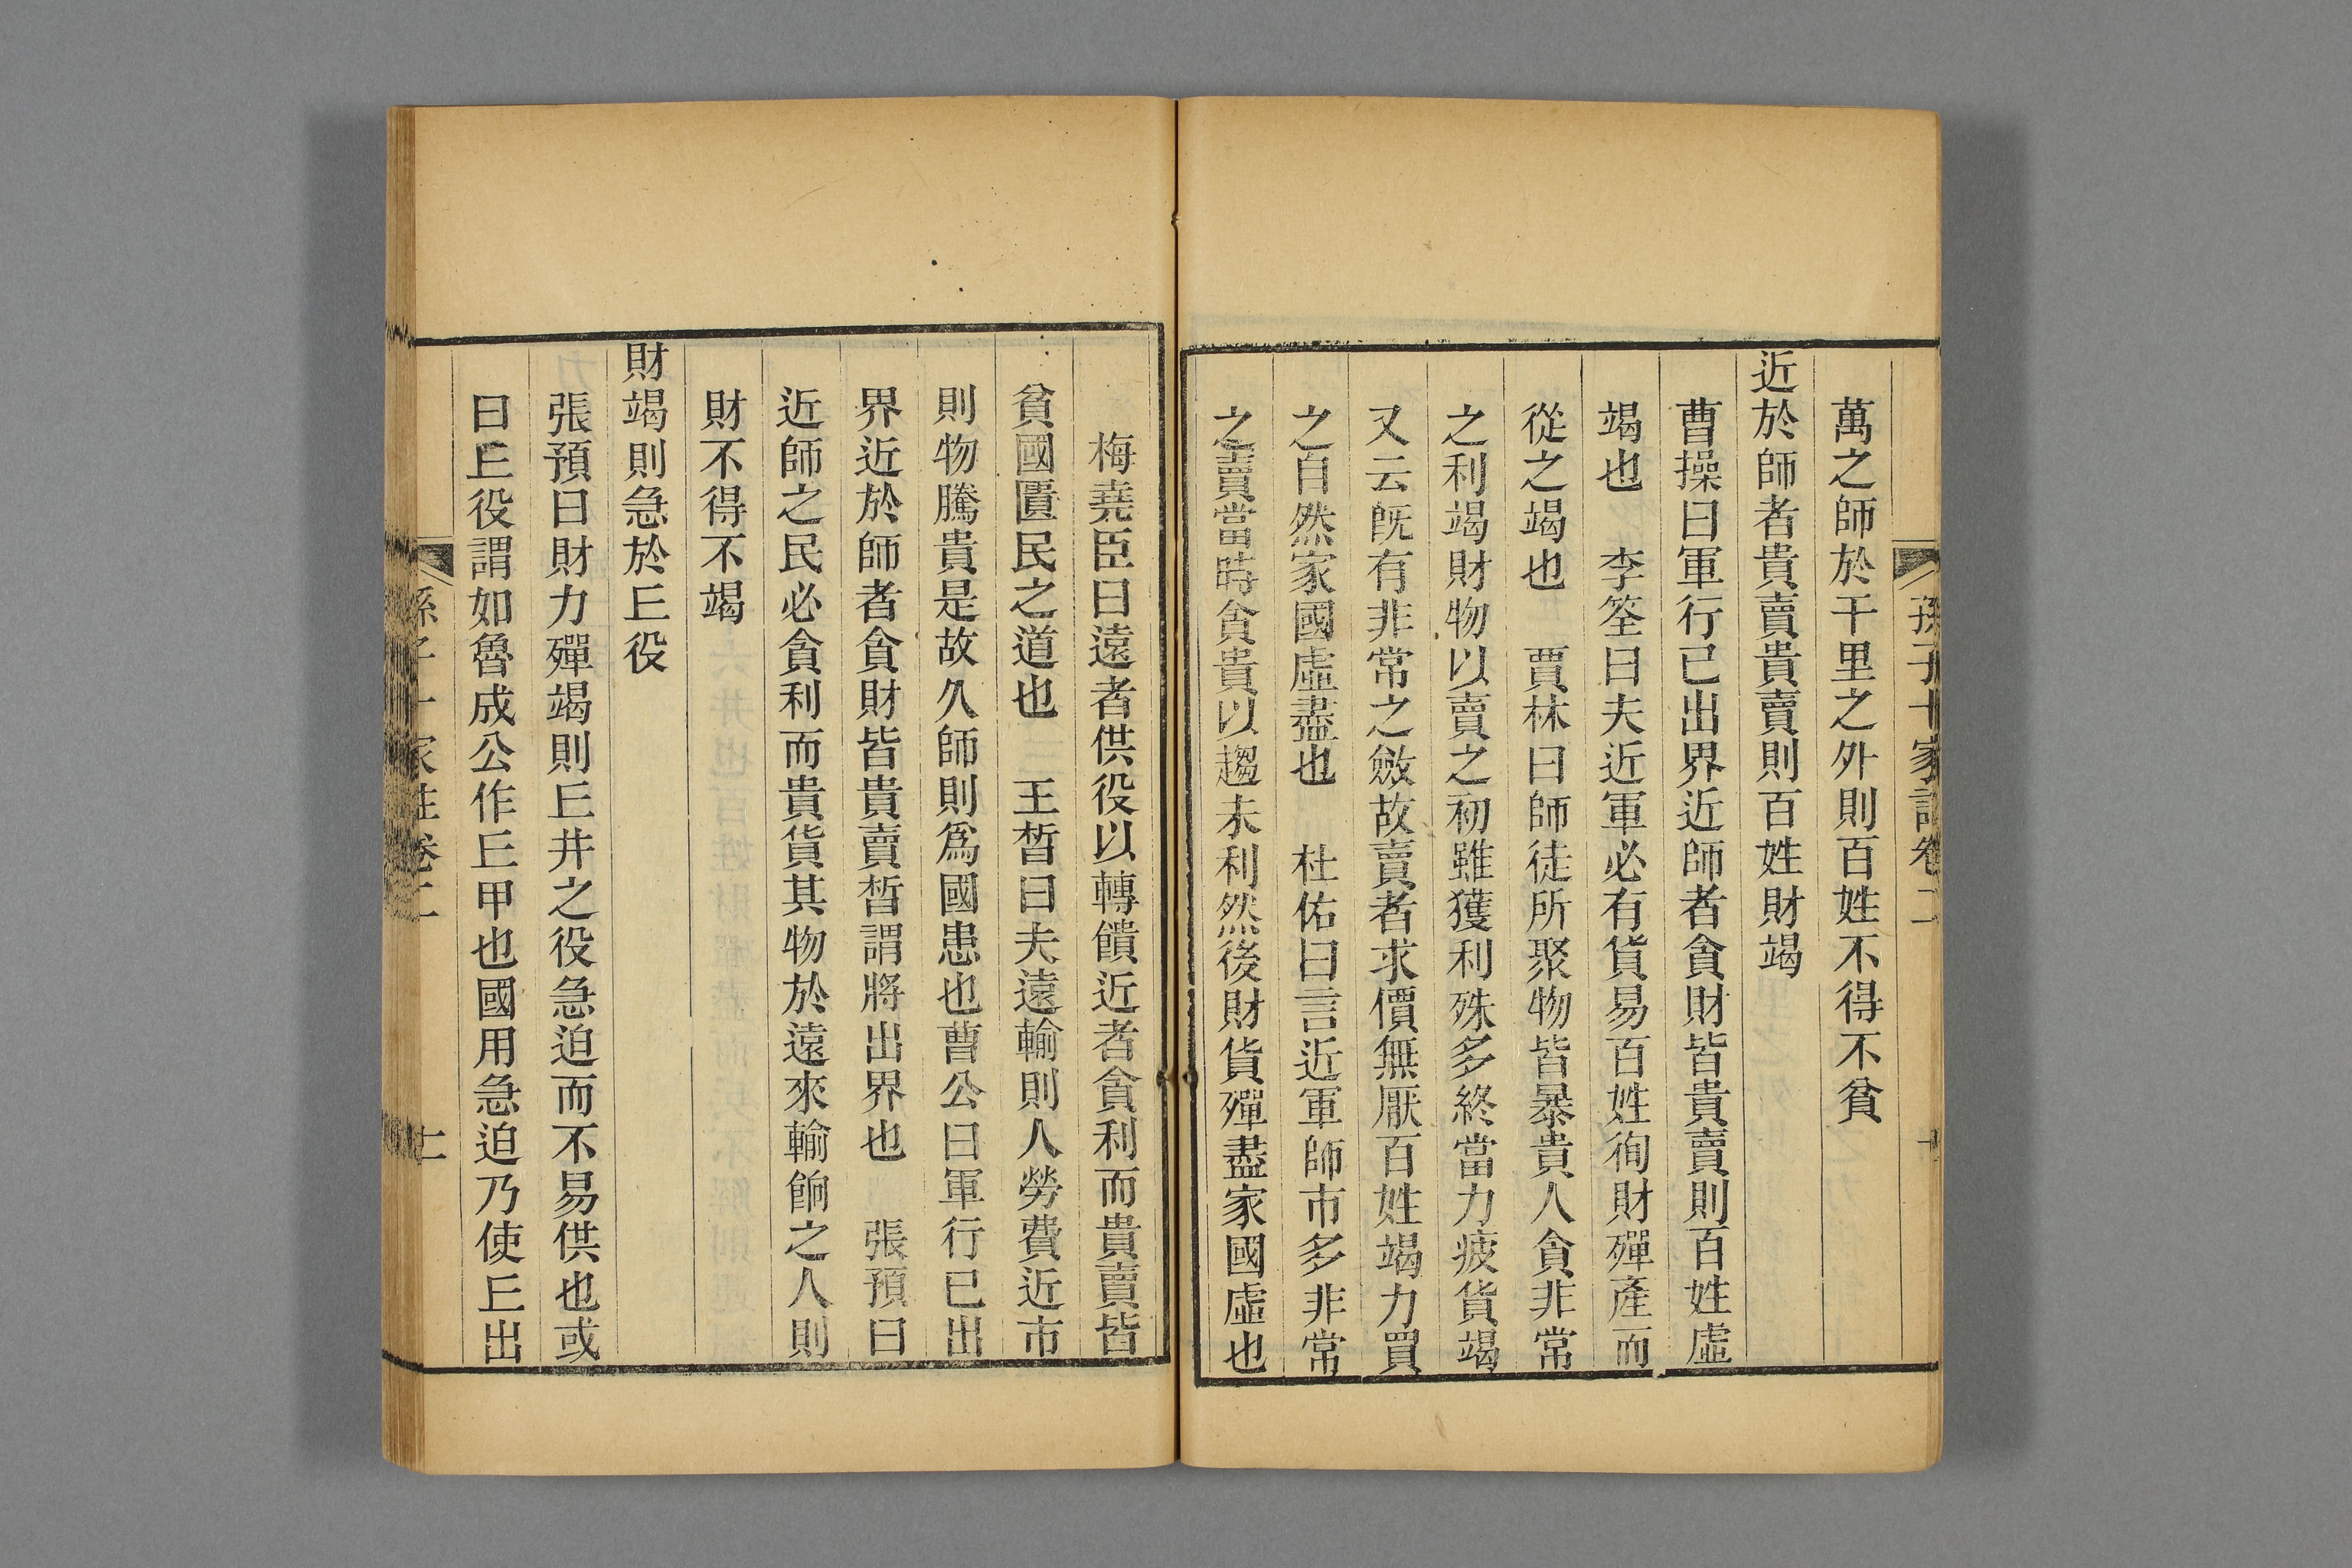 孫子十家註卷二
萬之師於千里之外則百姓不得不貧
近於師者貴賣貴賣則百姓財竭
曹操曰軍行已出界近師者貪財皆貴賣則百姓虛
竭也　李筌曰夫近軍必有貨易百姓徇財殫產而
從之竭也　賈林曰師徒所聚物皆暴貴人貪非常
之利竭財物以賣之初雖獲利殊多終當力疲貨竭
又云旣有非常之斂故賣者求價無厭百姓竭力買
之自然家國虛盡也　杜佑曰言近軍師市多非常
之賣當時貪貴以趨末利然後財貨殫盡家國虛也
梅堯臣曰遠者供役以轉饋近者貪利而貴賣皆
貧國匱民之道也　王晳曰夫遠輸則人勞費近市
則物騰貴是故久師則爲國患也曹公曰軍行已出
界近於師者貪財皆貴賣晳謂將出界也　張預曰
近師之民必貪利而貴貨其物於遠來輸餉之人則
財不得不竭
財竭則急於丘役
張預曰財力殫竭則丘井之役急迫而不易供也或
曰丘役謂如魯成公作丘甲也國用急迫乃使丘出
孫子十家註卷二　七